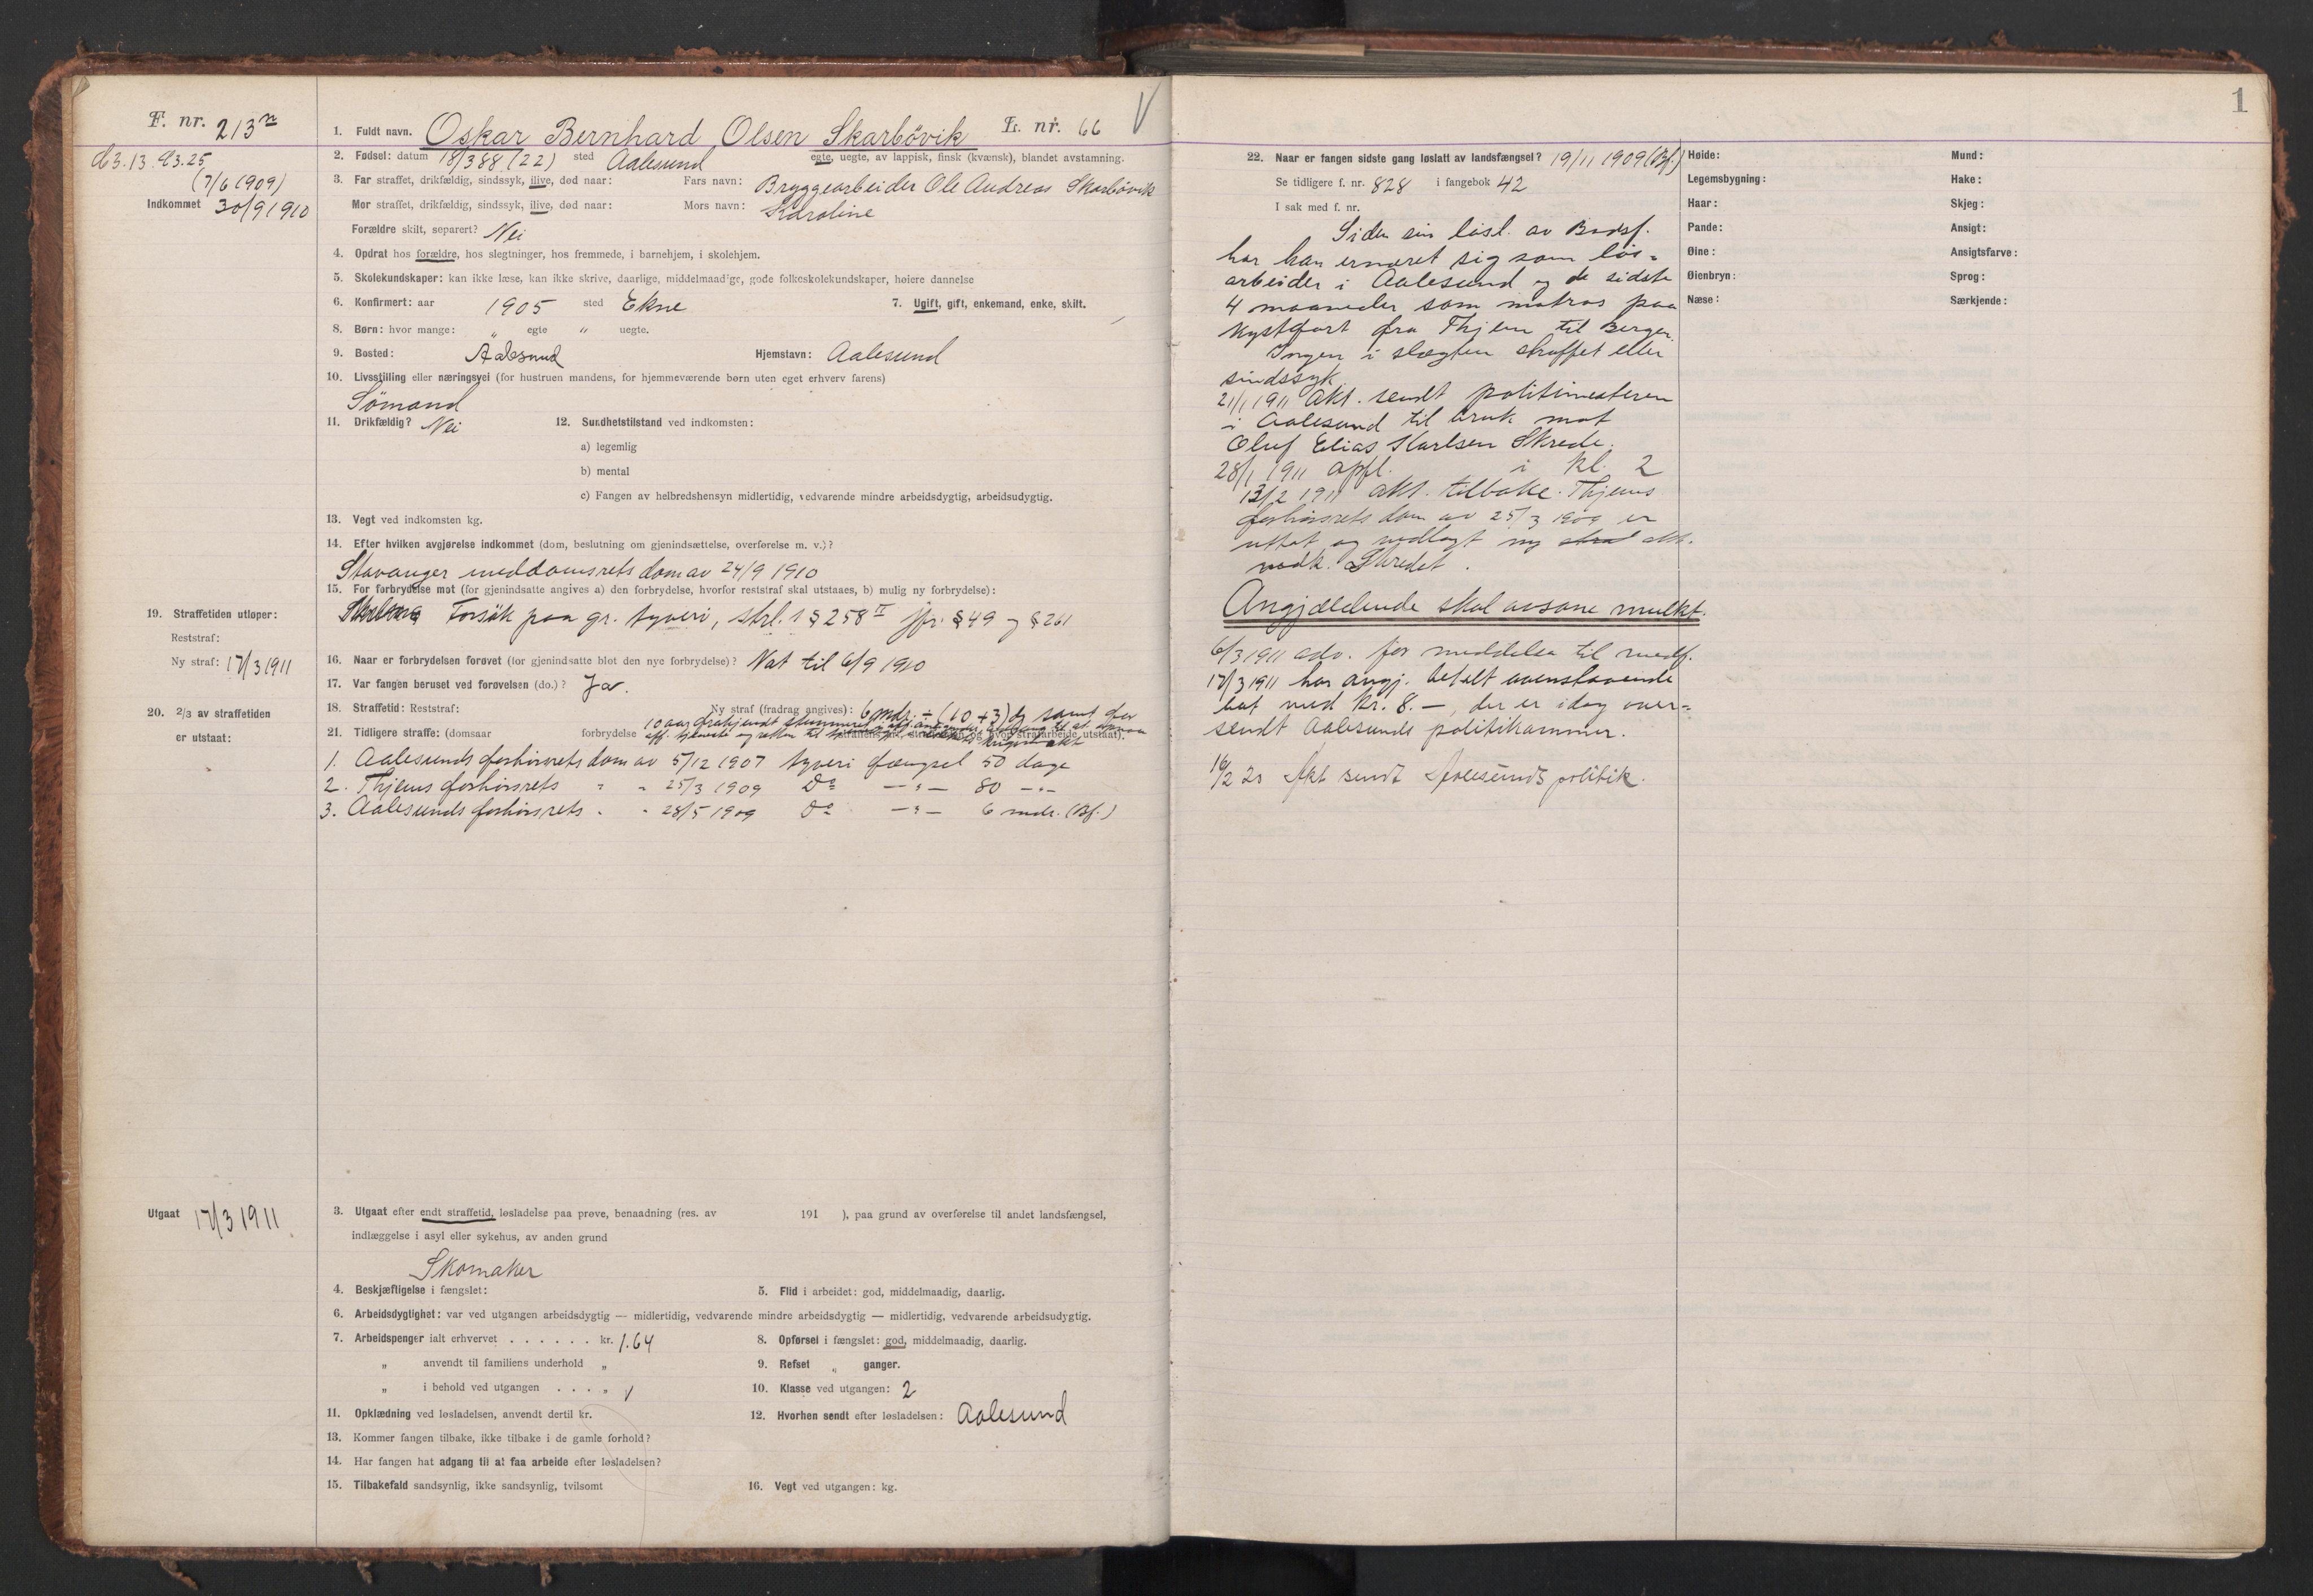 F. nr. 213
d3.13. d3.25
(7/6 1909)
Indkommet 30/9 1910
1. Fuldt navn. Oskar Bernhard Olsen Skarbövik L. nr. 66
2. Fødsel: datum 18/3 88 (22) sted Aalesund egte, uegte, av lappisk, finsk (kvænsk), blandet avstamning.
3. Far straffet, drikfældig, sindssyk, ilive, død naar: Fars navn: Bryggearbeider Ole Andreas Skarbövik
Mor straffet, drikfældig, sindssyk, ilive, død naar: Mors navn: Karoline
Forældre skilt, separert? Nei
4. Opdrat hos forældre, hos slegtninger, hos fremmede, i barnehjem, i skolehjem.
5. Skolekundskaper: kan ikke læse, kan ikke skrive, daarlige, middelmaadige, gode folkeskolekundskaper, høiere dannelse
6. Konfirmert: aar 1905 sted Ekne 7. Ugift, gift, enkemand, enke, skilt.
8. Børn: hvor mange: " egte " uegte.
9. Bosted: Aalesund Hjemstavn: Aalesund
10. Livsstilling eller næringsvei (for hustruen mandens, for hjemmeværende børn uten eget erhverv farens)
Sömand
11. Drikfældig? Nei 12. Sundhetstilstand ved indkomsten:
a) legemlig
b) mental
c) Fangen av helbredshensyn midlertidig, vedvarende mindre arbeidsdygtig, arbeidsudygtig.
13. Vegt ved indkomsten kg.
14. Efter hvilken avgjørelse indkommet (dom, beslutning om gjenindsættelse, overførelse m. v.)?
Stavanger meddomsrets dom av 24/9 1910
15. For forbrydelse mot (for gjenindsatte angives a) den forbrydelse, hvorfor reststraf skal utstaaes, b) mulig ny forbrydelse):
Forsök paa gr. tyveri, strl.s § 258 II jfr. § 49 og § 261
19. Straffetiden utløper:
Reststraf:
Ny straf: 17/3 1911
16. Naar er forbrydelsen forøvet (for gjenindsatte blot den nye forbrydelse)? Nat til 6/9 1910
17. Var fangen beruset ved forøvelsen (do.)? Ja.
20. 2/3 av straffetiden
er utstaat:
18. Straffetid: Reststraf: Ny straf (fradrag angives): 6 mdr. ÷ (10 + 3) dg samt for
10 aar frakjendt stemmeret i off. anliggender
21. Tidligere straffe: (domsaar forbrydelse straffens art, hvor strafarbeide utstaat).
1. Aalesunds forhörsrets dom av 5/12 1907 tyveri fængsel 50 dage
2. Thjems forhörsrets " " 25/3 1909 Do —"— 80 —"—
3. Aalesunds forhörsrets " " 28/5 1909 Do —"— 6 mdr. (Bf.)
Utgaat 17/3 1911
3. Utgaat efter endt straffetid, løsladelse paa prøve, benaadning (res. av 191 ), paa grund av overførelse til andet landsfængsel,
indlæggelse i asyl eller sykehus, av anden grund
Skomaker
4. Beskjæftigelse i fængslet: 5. Flid i arbeidet: god, middelmaadig, daarlig.
6. Arbeidsdygtighet: var ved utgangen arbeidsdygtig — midlertidig, vedvarende mindre arbeidsdygtig — midlertidig, vedvarende arbeidsudygtig.
7. Arbeidspenger ialt erhvervet . . . . . . kr. 1.64 8. Opførsel i fængslet: god, middelmaadig, daarlig.
" anvendt til familiens underhold " 9. Refset " ganger.
" i behold ved utgangen . . . " 10. Klasse ved utgangen: 2
11. Opklædning ved løsladelsen, anvendt dertil kr. 12. Hvorhen sendt efter løsladelsen: Aalesund
13. Kommer fangen tilbake, ikke tilbake i de gamle forhold?
14. Har fangen hat adgang til at faa arbeide efter løsladelsen?
15. Tilbakefald sandsynlig, ikke sandsynlig, tvilsomt 16. Vegt ved utgangen: kg.
1
22. Naar er fangen sidste gang løslatt av landsfængsel? 19/11 1909 (Bf.)
Se tidligere f. nr. 828 i fangebok 42
I sak med f. nr.
Siden sin løsl. av Bodsf.
har han ernæret sig som løs-
arbeider i Aalesund og de sidste
4 maaneder som matros paa
kystfart fra Thjem til Bergen.
Ingen i slægten straffet eller
sindssyk.
21/1 1911 Akt. sendt politimesteren
i Aalesund til bruk mot
Oluf Elias Karlsen Skrede.
28/1 1911 opfl. i kl. 2
13/2 1911 akt. tilbake. Thjems
forhörsrets dom av 25/3 1909 er
uttat og vedlagt ny akt.
vedk. Skredet.
Angjældende skal avsone mulkt.
6/3 1911 adv. for meddelse til medf.
17/3 1911 har angj. betalt ovenstaaende
bot med kr. 8.—, der er idag over-
sendt Aalesunds politikammer.
16/2 21 Akt sendt Aalesunds politik.
Høide: Mund:
Legemsbygning: Hake:
Haar: Skjeg:
Pande: Ansigt:
Øine: Ansigtsfarve:
Øienbryn: Sprog:
Næse: Særkjende: